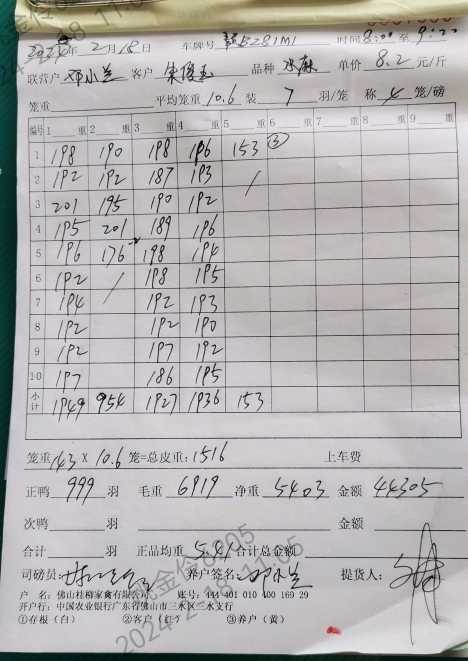 2024年2月18日 车牌号 B281M1 时间8:00至9:20
联营户 邓小兰 客户 品种 水麻 单价 8.2 元/斤
笼重 平均笼重 10.6 装 7 羽/笼 称 4 笼/磅
编号 1 重 2 重 3 重 4 重 5 重 6 重 7 重 8 重 9 重
1 198 190 198 196 153 ③
2 192 192 187 193 /
3 201 195 190 192
4 195 201 189 196
5 196 176 198 194
6 192 / 198 195
7 194 192 193
8 192 192 190
9 192 197 192
10 197 186 195
小计 1949 954 1927 1936 153
笼重 143 X 10.6 笼=总皮重: 1516 上车费
正鸭 999 羽 毛重 6919 净重 5403 金额 44305
次鸭 羽 金额
合计 羽 正品均重 5.41 合计总金额
司磅员: 养户签名: 邓小兰 提货人:
户 名: 佛山桂柳家禽有限公司 账号: 444 401 010 400 169 29
开户行: 中国农业银行广东省佛山市三水区三水支行
①存根(白) ②客户(红) ③养户(黄)